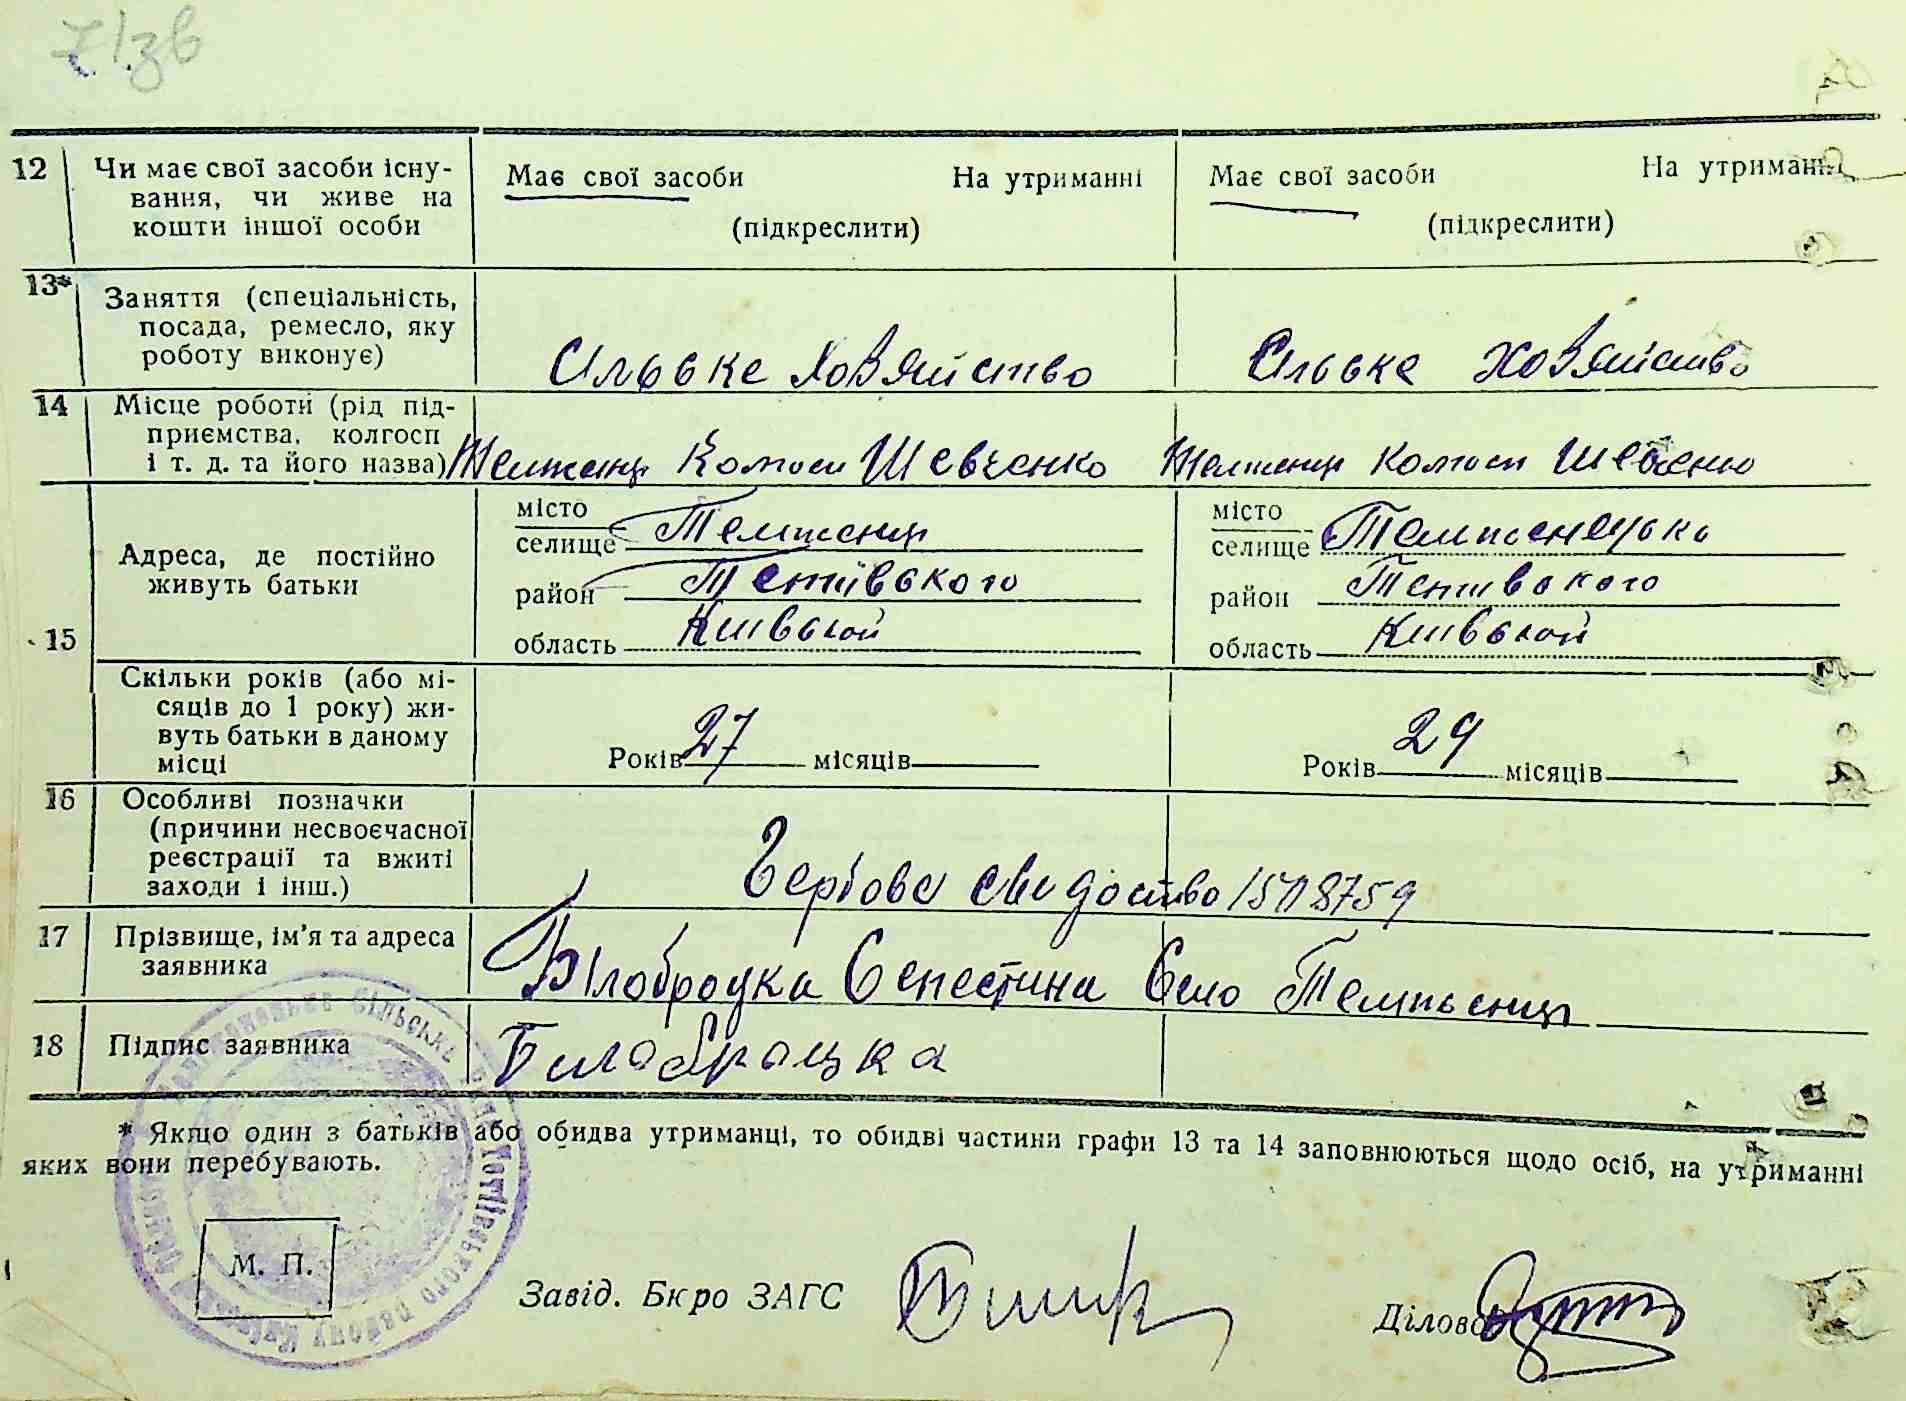 71зв
12 Чи має свої засоби існу-
вання, чи живе на
кошти іншої особи
Має свої засоби На утриманні
(підкреслити)
Має свої засоби На утриманні
(підкреслити)
13* Заняття (спеціальність,
посада, ремесло, яку
роботу виконує)
Сільске Ховяйство
Сільске Ховяйство
14 Місце роботи (рід під-
приємства, колгосп
і т. д. та його назва)
Шевченко
15 Адреса, де постійно
живуть батьки
місто
селище
район Тетівского
область Київской
місто
селище
район Тетівского
область Київской
Скільки років (або мі-
сяців до 1 року) жи-
вуть батьки в даному
місці
Років 27 місяців
Років 29 місяців
16 Особливі позначки
(причини несвоєчасної
реєстрації та вжиті
заходи і інш.)
Гербове сведоство
17 Прізвище, ім'я та адреса
заявника
Білоброцка Село
18 Підпис заявника
Билоброцка
* Якщо один з батьків або обидва утриманці, то обидві частини графи 13 та 14 заповнюються щодо осіб, на утриманні
яких вони перебувають.
М. П.
Завід. Бюро ЗАГС
Діловод